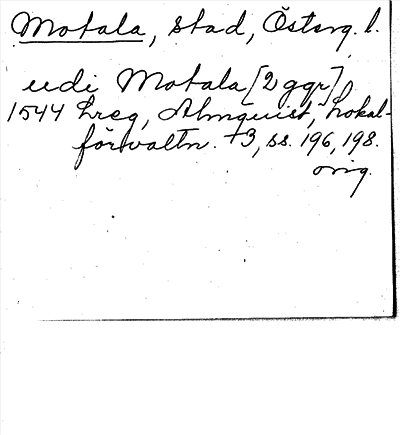 Motala, stad, Österg. l.
udi Motala [2 ggr]
1544 Lreg, Almquist, Lokal-
förvaltn. +3, ss. 196, 198.
orig.